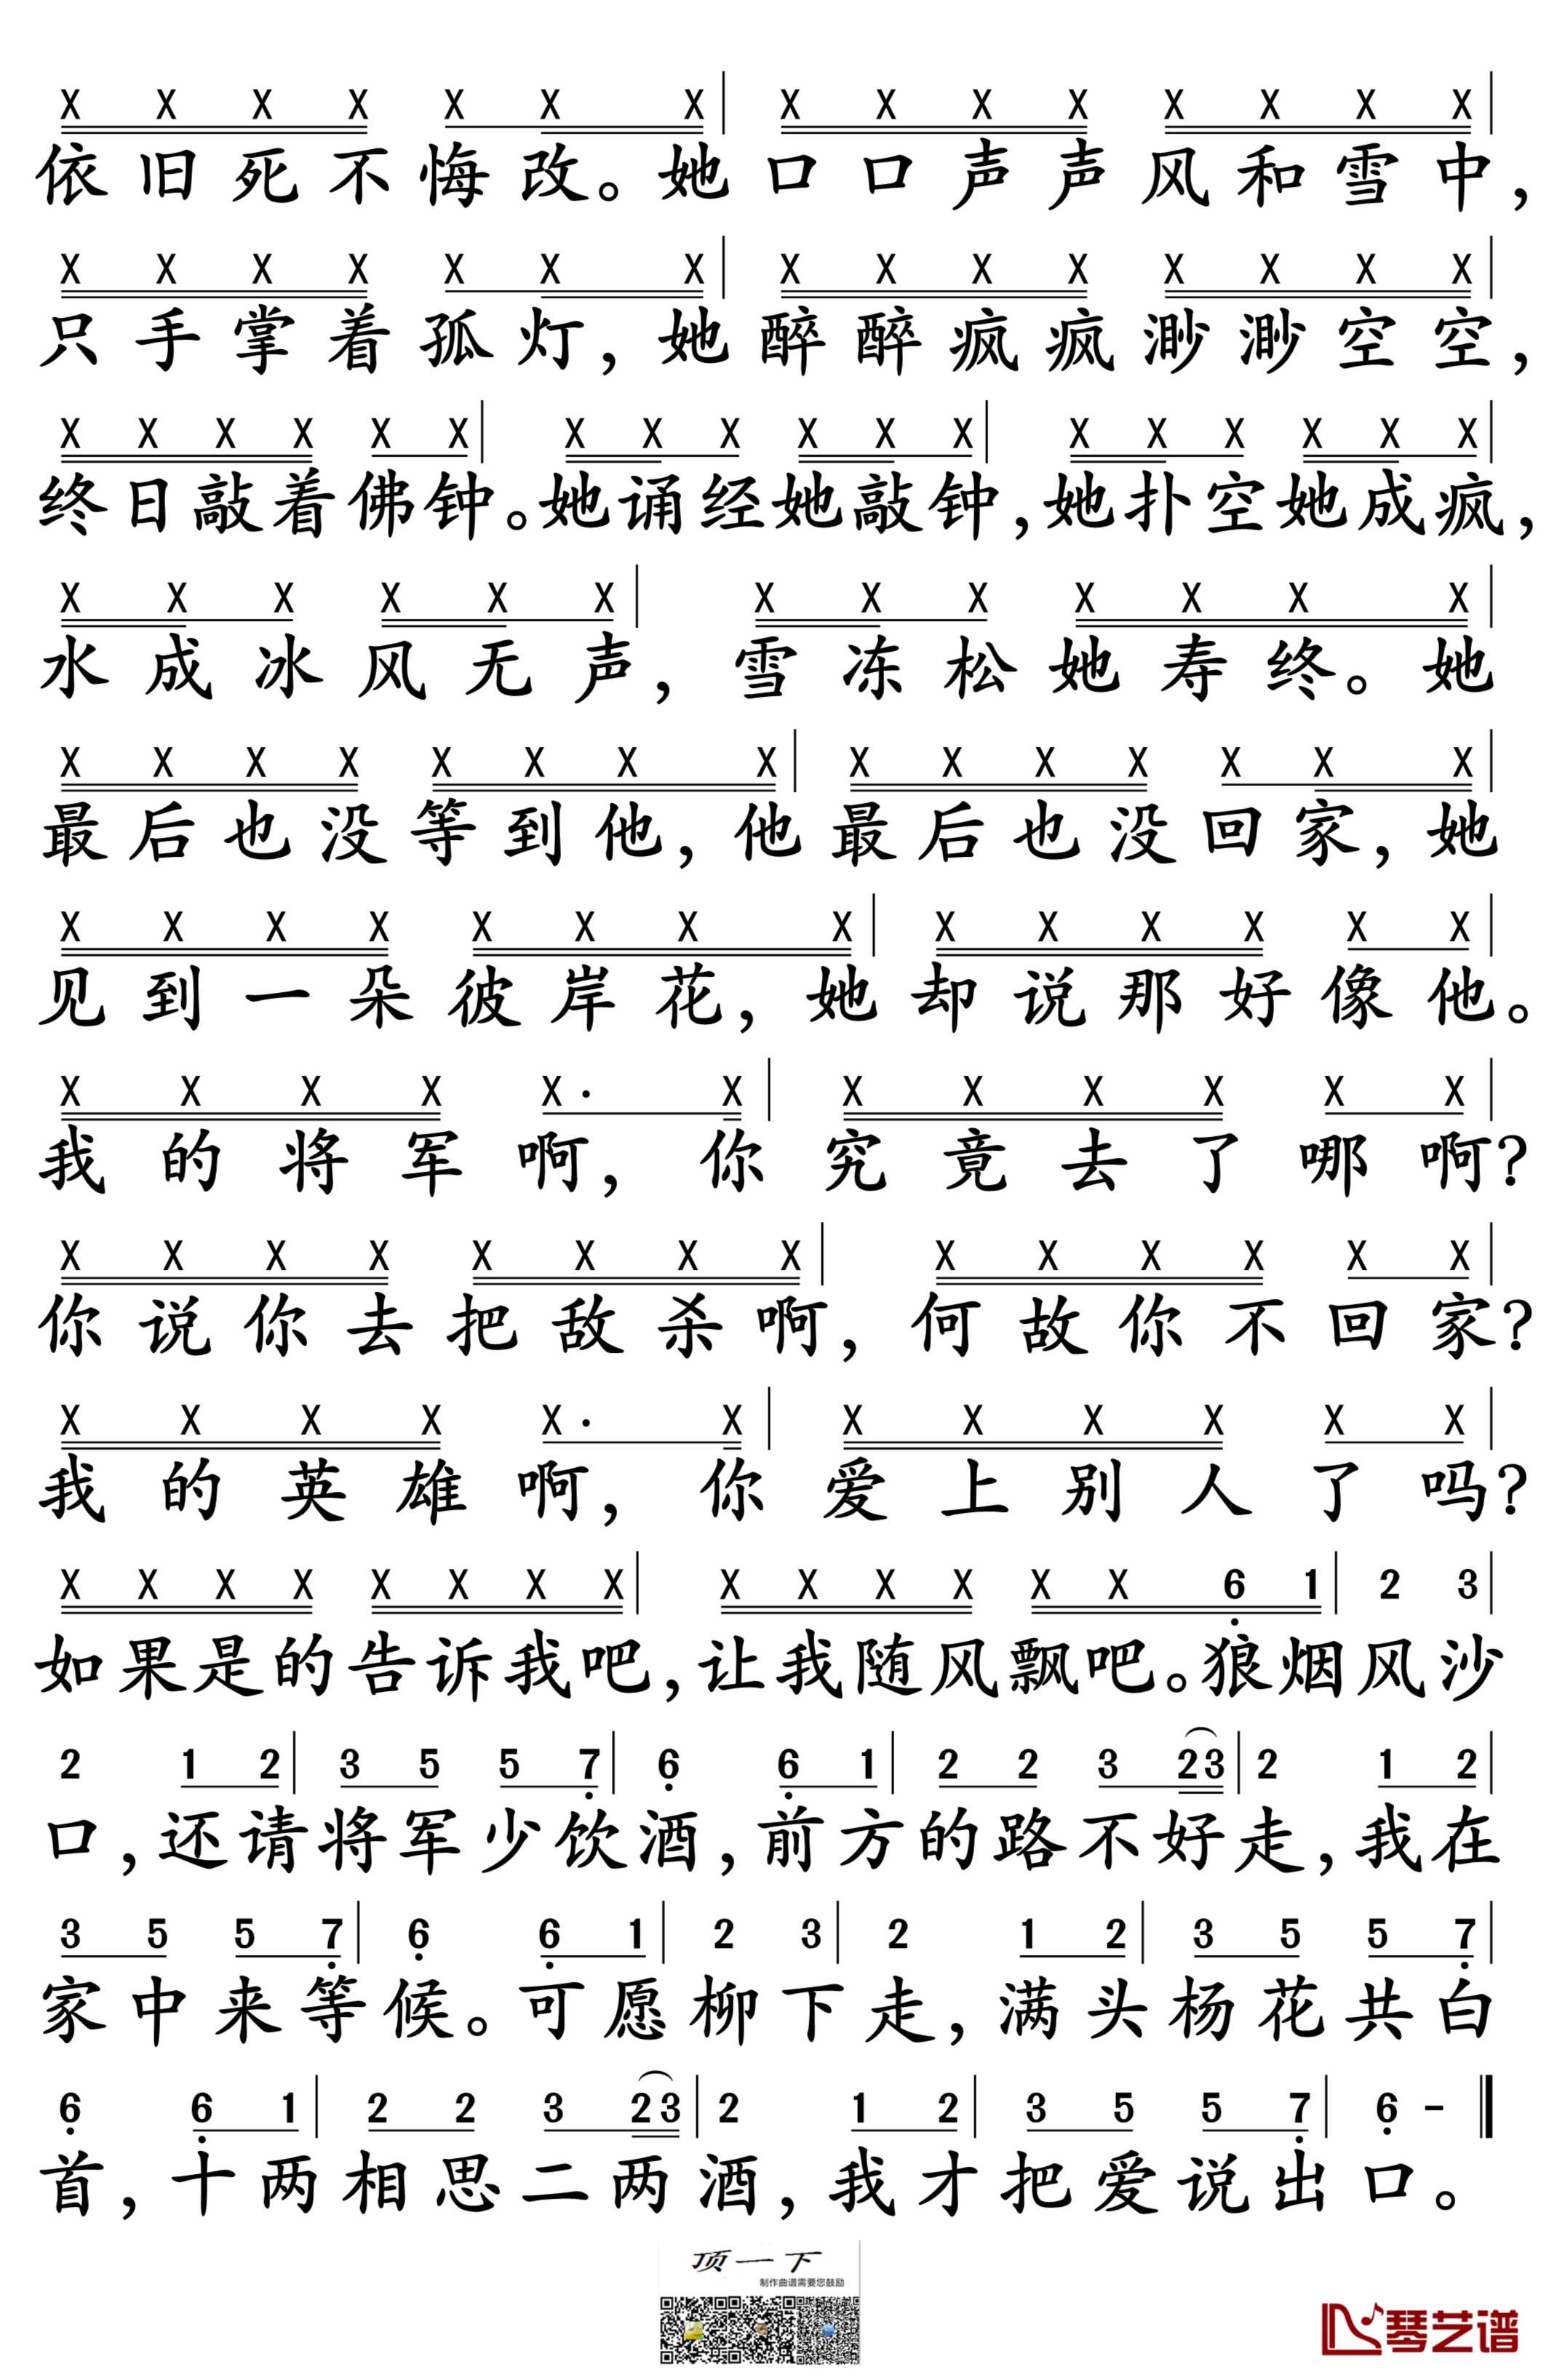 X X X X X X X | X X X X X X X X |
依旧死不悔改。她口口声声风和雪中，
X X X X X X X | X X X X X X X X |
只手掌着孤灯，她醉醉疯疯渺渺空空，
X X X X X X | X X X X X X | X X X X X X |
终日敲着佛钟。她诵经她敲钟，她扑空她成疯，
X X X X X X | X X X X X X X |
水成冰风无声，雪冻松她寿终。她
X X X X X X X X | X X X X X X X |
最后也没等到他，他最后也没回家，她
X X X X X X X X | X X X X X X |
见到一朵彼岸花，她却说那好像他。
X X X X X· X | X X X X X X |
我的将军啊，你究竟去了哪啊？
X X X X X X X X | X X X X X X |
你说你去把敌杀啊，何故你不回家？
X X X X X· X | X X X X X X |
我的英雄啊，你爱上别人了吗？
X X X X X X X X | X X X X X X 6 1 | 2 3 |
如果是的告诉我吧，让我随风飘吧。狼烟风沙
2 1 2 | 3 5 5 7 | 6 6 1 | 2 2 3 23 | 2 1 2 |
口，还请将军少饮酒，前方的路不好走，我在
3 5 5 7 | 6 6 1 | 2 3 | 2 1 2 | 3 5 5 7 |
家中来等候。可愿柳下走，满头杨花共白
6 6 1 | 2 2 3 23 | 2 1 2 | 3 5 5 7 | 6 - ‖
首，十两相思二两酒，我才把爱说出口。
顶一下
制作曲谱需要您鼓励
琴艺谱